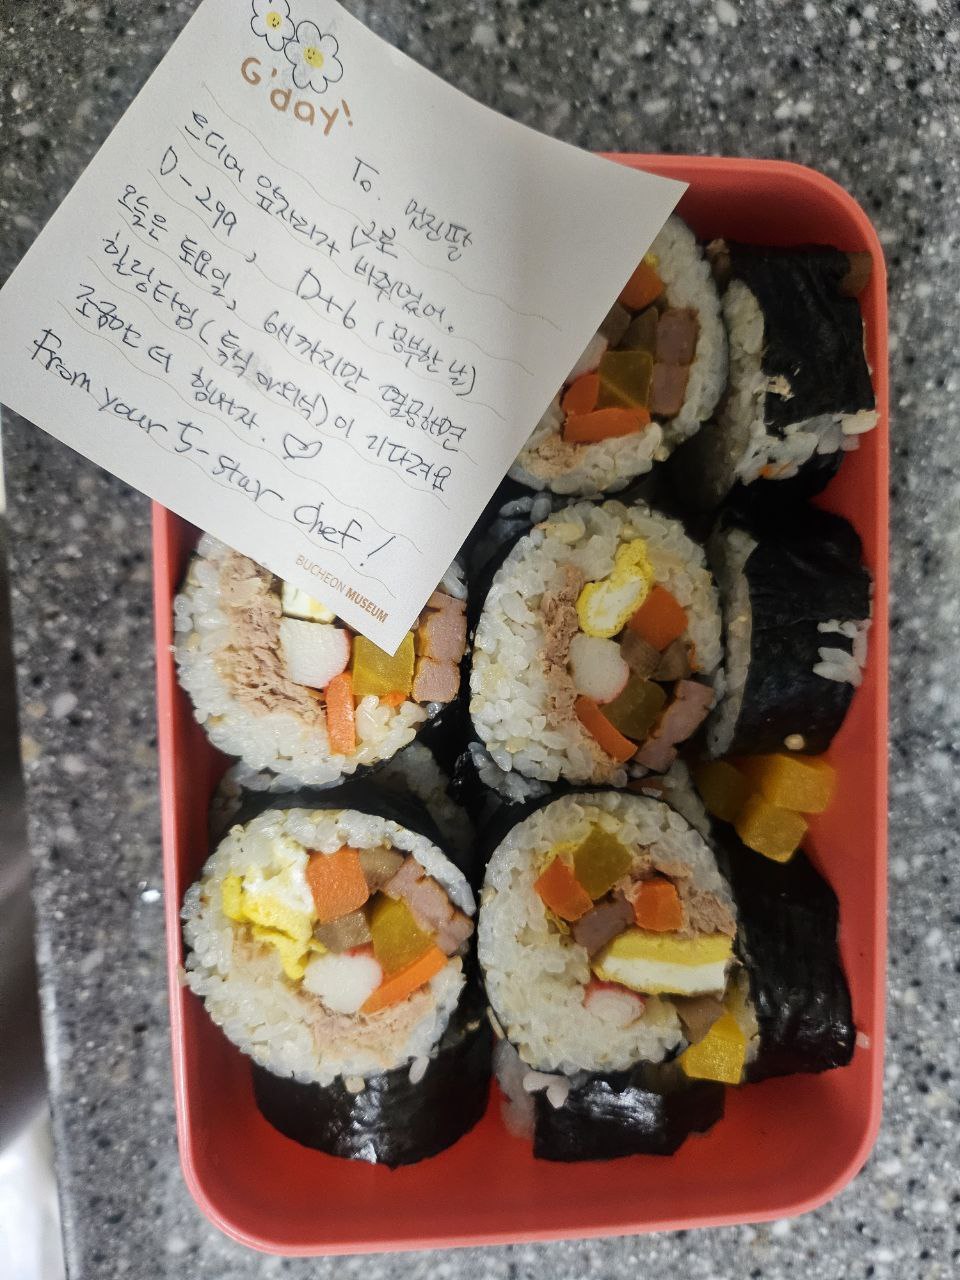 G'day!
To. 멋진딸
드디어 앞자리가 2로 바뀌었어.
D-299, D+6 (공부한 날)
오늘은 토요일, 6시까지만 열공하면
힐링타임(특식 야외식)이 기다려요
조금만 더 힘내자. ♡
From your 5-star chef!
BUCHEON MUSEUM